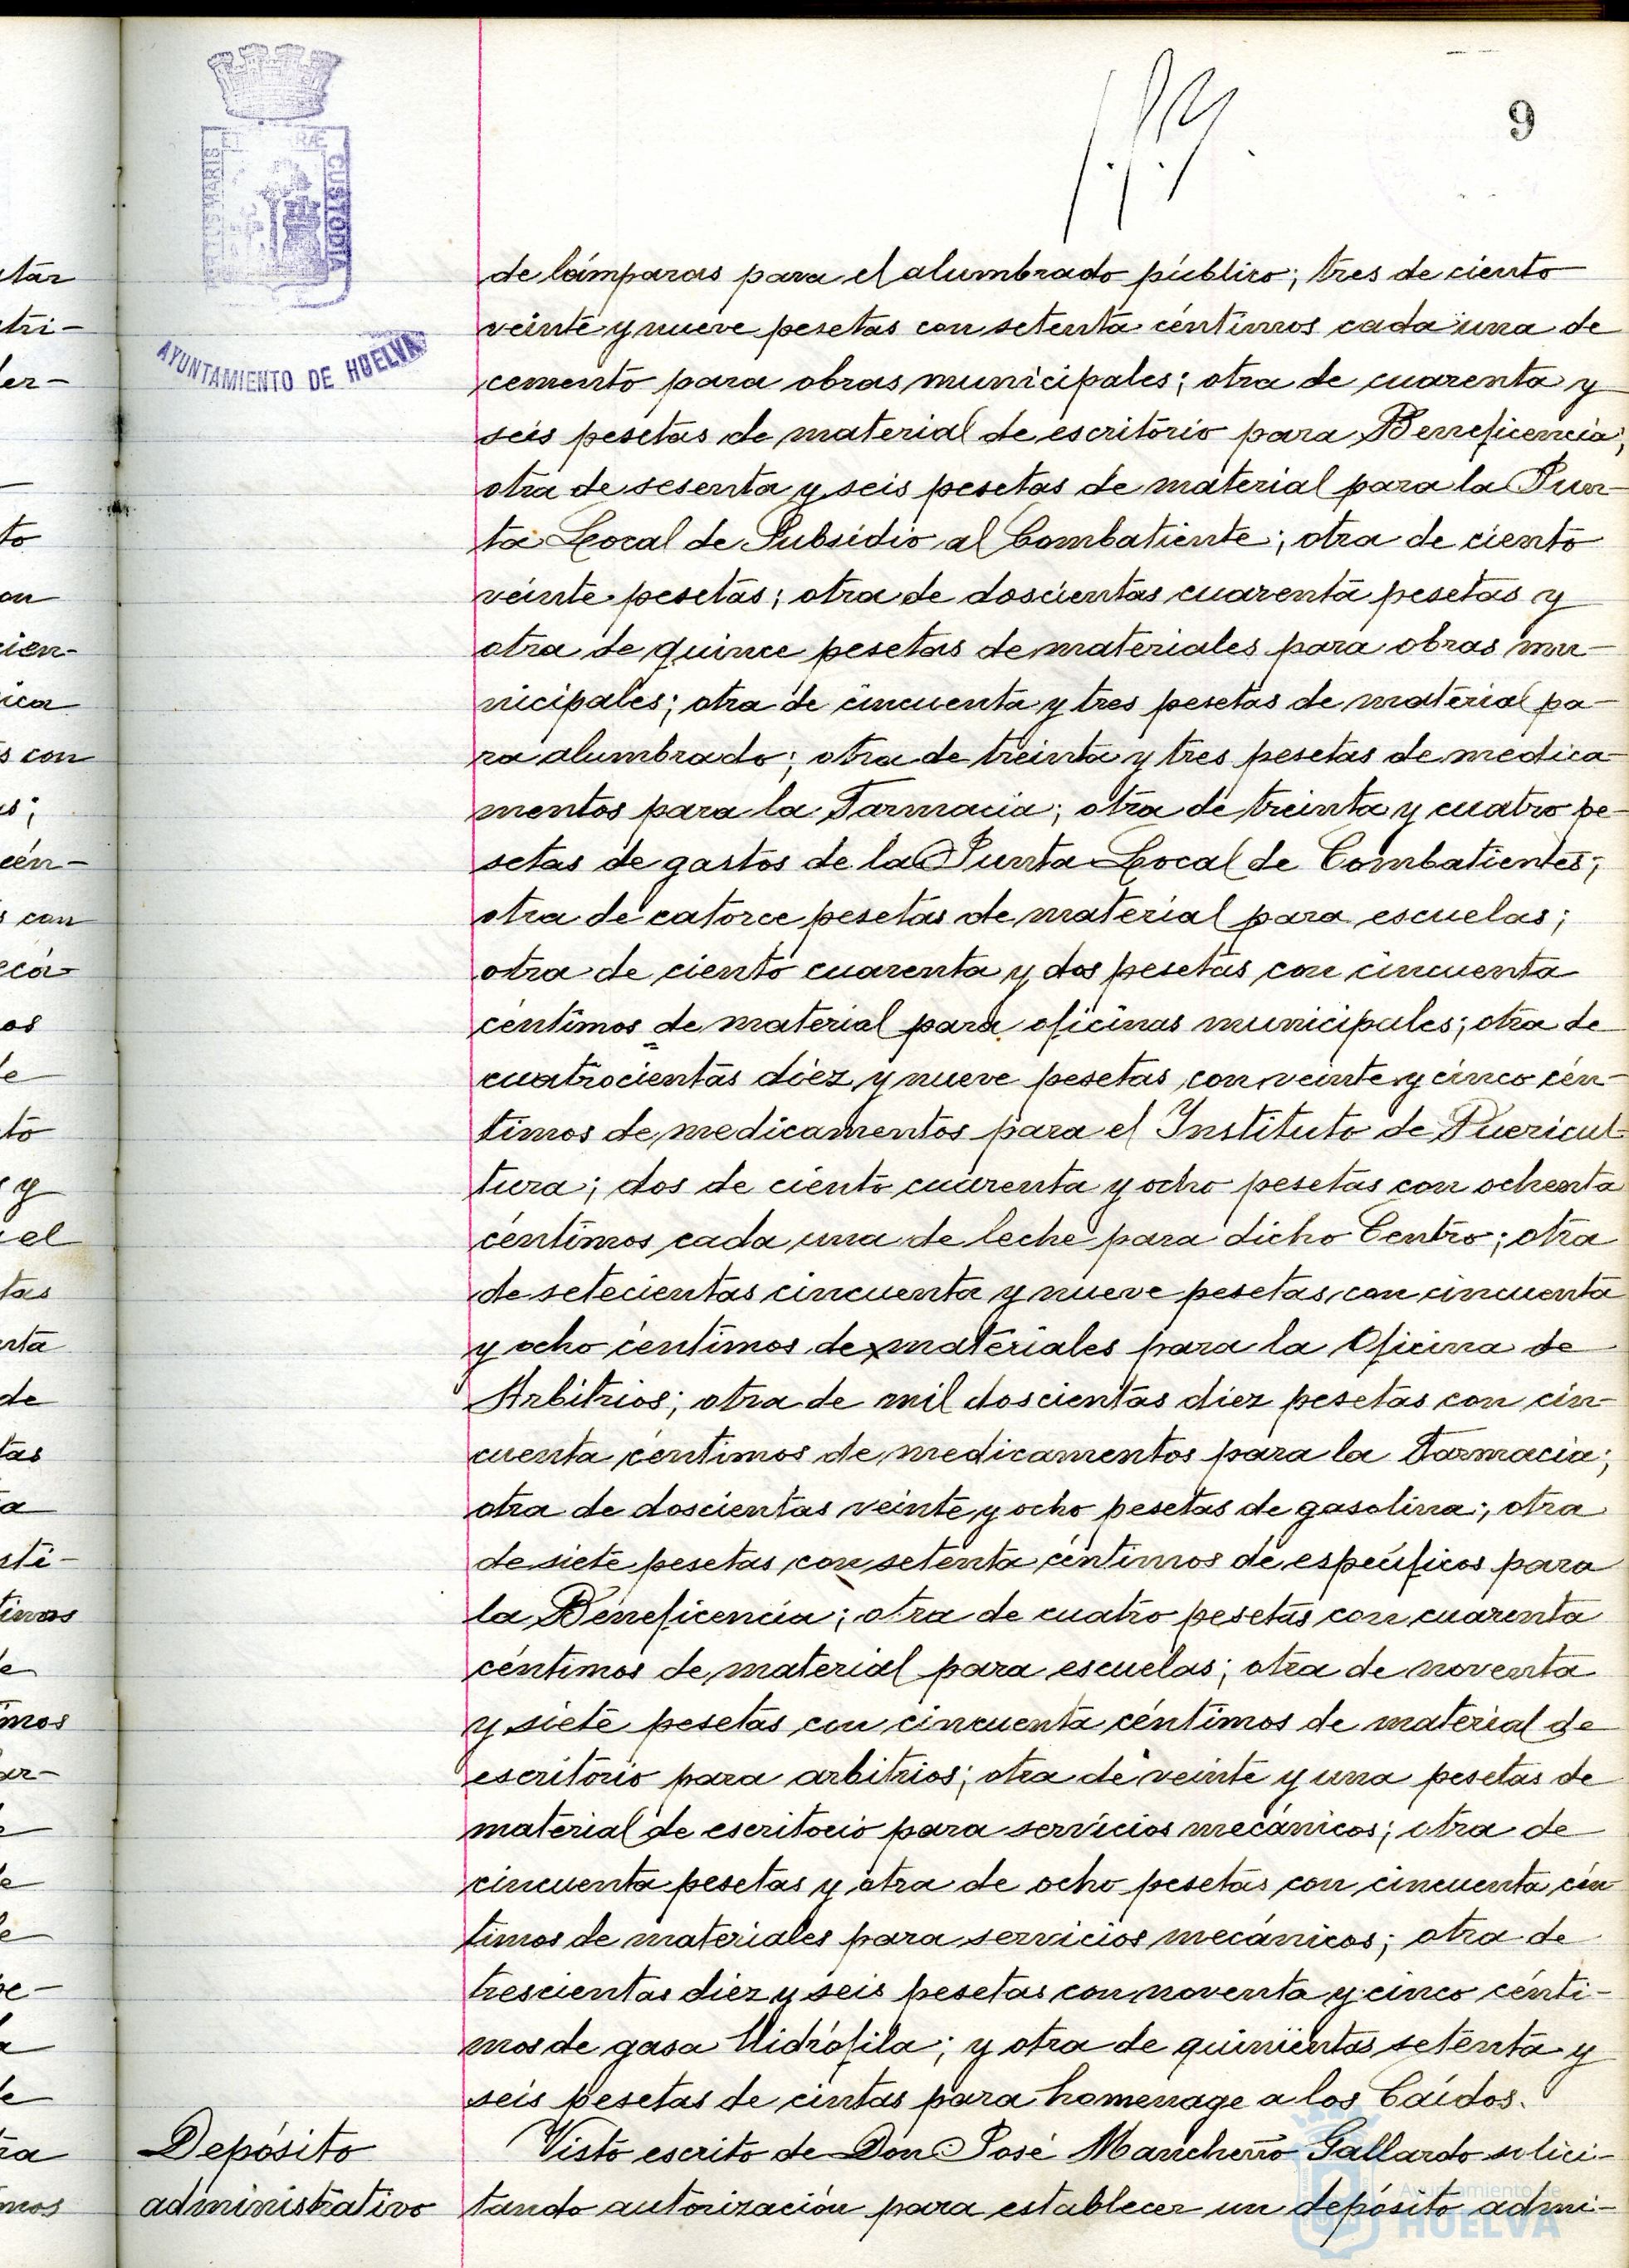 9
PORTUS MARIS ET TERRÆ CUSTODIA
AYUNTAMIENTO DE HUELVA
de lámparas para el alumbrado público; tres de ciento
veinte y nueve pesetas con setenta céntimos cada una de
cemento para obras municipales; otra de cuarenta y
seis pesetas de material de escritorio para Beneficencia;
otra de sesenta y seis pesetas de material para la Jun-
ta Local de Subsidio al Combatiente; otra de ciento
veinte pesetas; otra de doscientas cuarenta pesetas y
otra de quince pesetas de materiales para obras mu-
nicipales; otra de cincuenta y tres pesetas de material pa-
ra alumbrado; otra de treinta y tres pesetas de medica-
mentos para la Farmacia; otra de treinta y cuatro pe-
setas de gastos de la Junta Local de Combatientes;
otra de catorce pesetas de material para escuelas;
otra de ciento cuarenta y dos pesetas con cincuenta
céntimos de material para oficinas municipales; otra de
cuatrocientas diez y nueve pesetas con veinte y cinco cén-
timos de medicamentos para el Instituto de Puericul-
tura; dos de ciento cuarenta y ocho pesetas con ochenta
céntimos cada una de leche para dicho Centro; otra
de setecientas cincuenta y nueve pesetas con cincuenta
y ocho céntimos de materiales para la Oficina de
Arbitrios; otra de mil doscientas diez pesetas con cin-
cuenta céntimos de medicamentos para la Farmacia;
otra de doscientas veinte y ocho pesetas de gasolina; otra
de siete pesetas con setenta céntimos de específicos para
la Beneficencia; otra de cuatro pesetas con cuarenta
céntimos de material para escuelas; otra de noventa
y siete pesetas con cincuenta céntimos de material de
escritorio para arbitrios; otra de veinte y una pesetas de
material de escritorio para servicios mecánicos; otra de
cincuenta pesetas y otra de ocho pesetas con cincuenta cén
timos de materiales para servicios mecánicos; otra de
trescientas diez y seis pesetas con noventa y cinco cénti-
mos de gasa Hidrófila; y otra de quinientas setenta y
seis pesetas de cintas para homenage a los Caídos.
Depósito
administrativo
Visto escrito de Don José Mancheño Gallardo solici-
tando autorización para establecer un depósito admi-
Ayuntamiento de
HUELVA